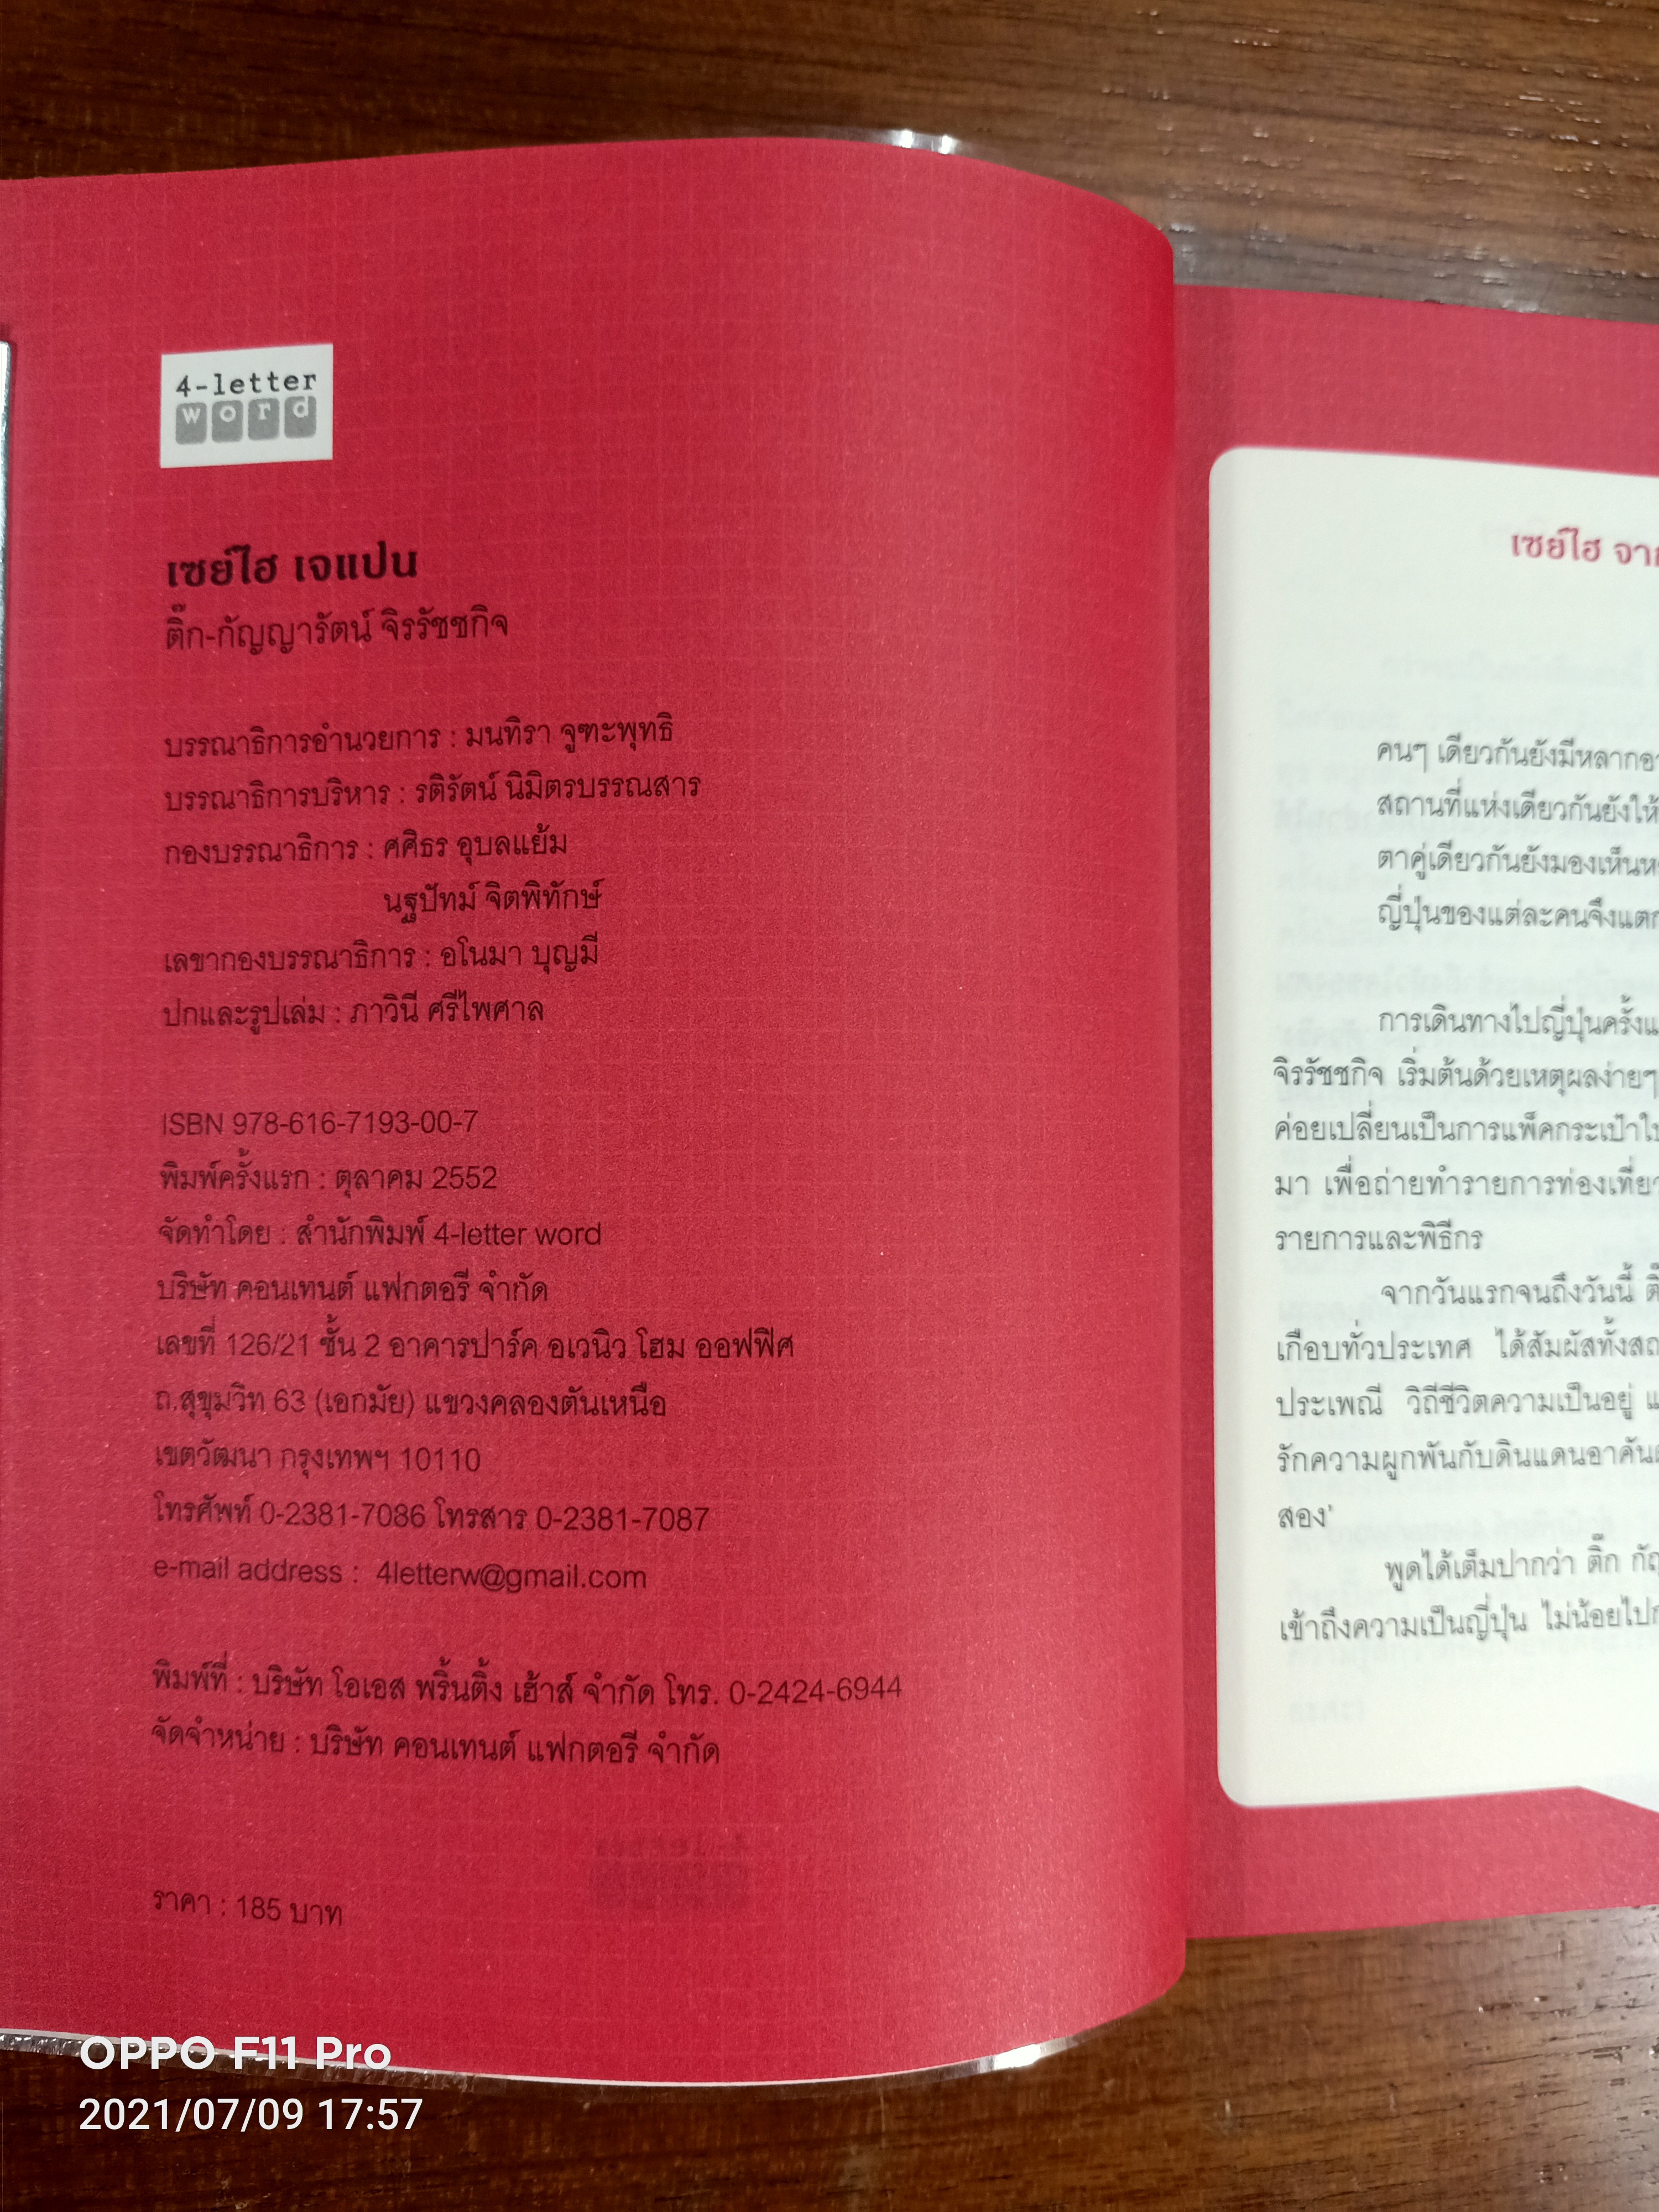 4-letter
word
เซย์ไฮ เจแปน
ติ๊ก-กัญญารัตน์ จิรรัชชกิจ
บรรณาธิการอำนวยการ : มนทิรา จูฑะพุทธิ
บรรณาธิการบริหาร : รติรัตน์ นิมิตรบรรณสาร
กองบรรณาธิการ : ศศิธร อุบลแย้ม
นฐปัทม์ จิตพิทักษ์
เลขากองบรรณาธิการ : อโนมา บุญมี
ปกและรูปเล่ม : ภาวินี ศรีไพศาล
ISBN 978-616-7193-00-7
พิมพ์ครั้งแรก : ตุลาคม 2552
จัดทำโดย : สำนักพิมพ์ 4-letter word
บริษัท คอนเทนต์ แฟกตอรี จำกัด
เลขที่ 126/21 ชั้น 2 อาคารปาร์ค อเวนิว โฮม ออฟฟิศ
ถ.สุขุมวิท 63 (เอกมัย) แขวงคลองตันเหนือ
เขตวัฒนา กรุงเทพฯ 10110
โทรศัพท์ 0-2381-7086 โทรสาร 0-2381-7087
e-mail address : 4letterw@gmail.com
พิมพ์ที่ : บริษัท โอเอส พริ้นติ้ง เฮ้าส์ จำกัด โทร. 0-2424-6944
จัดจำหน่าย : บริษัท คอนเทนต์ แฟกตอรี จำกัด
ราคา : 185 บาท
เซย์ไฮ
คนๆ เดียวกันยังมีหลาก
สถานที่แห่งเดียวกันยังให้
ตาคู่เดียวกันยังมองเห็น
ญี่ปุ่นของแต่ละคนจึง
การเดินทางไปญี่ปุ่นครั้ง
จิรรัชชกิจ เริ่มต้นด้วยเหตุผลง่ายๆ
ค่อยเปลี่ยนเป็นการแพ็คกระเป๋า
มา เพื่อถ่ายทำรายการท่องเที่ยว
รายการและพิธีกร
จากวันแรกจนถึงวันนี้
เกือบทั่วประเทศ ได้สัมผัสทั้ง
ประเพณี วิถีชีวิตความเป็นอยู่
รักความผูกพันกับดินแดนอาคันตุ
สอง'
พูดได้เต็มปากว่า ติ๊ก
เข้าถึงความเป็นญี่ปุ่น ไม่น้อยไป
OPPO F11 Pro
2021/07/09 17:57